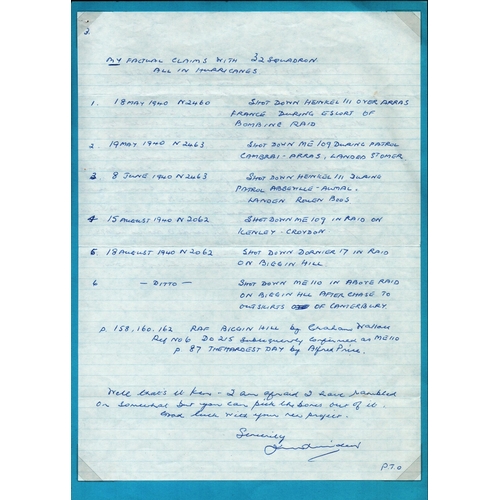 2
MY FACTUAL CLAIMS WITH 32 SQUADRON
ALL IN HURRICANES
1. 18 MAY 1940 N2460 SHOT DOWN HEINKEL 111 OVER ARRAS
FRANCE DURING ESCORT OF
BOMBING RAID
2 19 MAY 1940 N2463 SHOT DOWN ME 109 DURING PATROL
CAMBRAI-ARRAS, LANDED ST OMER
3 8 JUNE 1940 N2463 SHOT DOWN HEINKEL 111 DURING
PATROL ABBEVILLE-AUMAL.
LANDED ROUEN BOOS
4 15 AUGUST 1940 N2062 SHOT DOWN ME 109 IN RAID ON
KENLEY-CROYDON
5. 18 AUGUST 1940 N2062 SHOT DOWN DORNIER 17 IN RAID
ON BIGGIN HILL
6 - DITTO - SHOT DOWN ME 110 IN ABOVE RAID
ON BIGGIN HILL AFTER CHASE TO
OUTSKIRTS OF CANTERBURY.
p. 158, 160, 162 RAF BIGGIN HILL by Graham Wallace
Ref No 6 DO 215 Subsequently Confirmed as ME 110
p. 87 THE HARDEST DAY by Alfred Price.
Well that's it Ken - I am afraid I have rambled
on somewhat but you can pick the bones out of it.
Good luck with your new project.
Sincerely
P.T.O